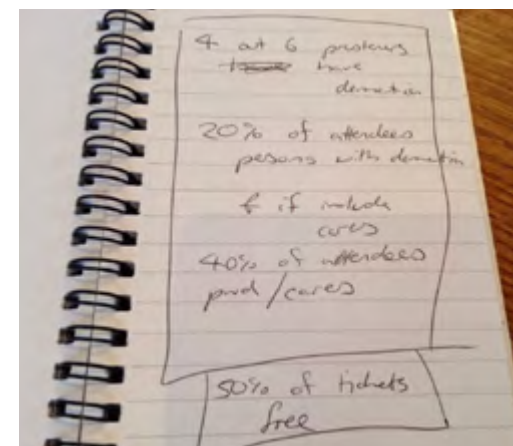 4 out 6
have
dementia
20% of attendees
persons with dementia
& if include
carers
40% of attendees
pwd / carers
50% of tickets
free